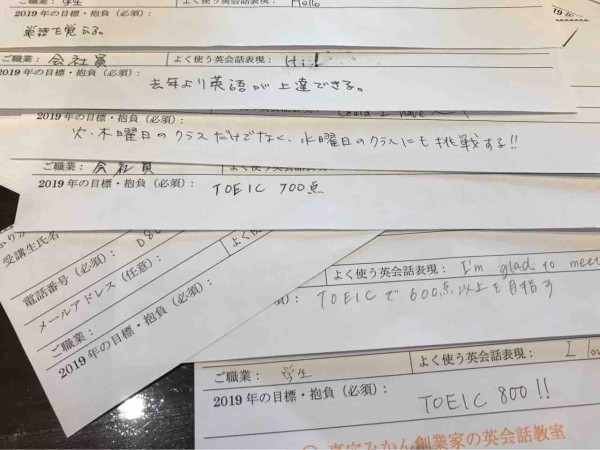 ご職業： 学生 よく使う英会話表現： Hallo
2019 年の目標・抱負（必須）：
単語を覚える。
ご職業： 会社員 よく使う英会話表現： Hi!
2019 年の目標・抱負（必須）：
去年より英語が上達できる。
Could I have
2019 年の目標・抱負（必須）：
火・木曜日のクラスだけでなく、水曜日のクラスにも挑戦する!!
ご職業： 会社員 よく使う英会話表現：
2019 年の目標・抱負（必須）： TOEIC 700点
受講生氏名
電話番号（必須）： 080
メールアドレス（任意）：
ご職業： よく使
2019 年の目標・抱負（必須）：
よく使う英会話表現： I'm glad to meet
須）： TOEICで600点以上を目指す
ご職業： 学生 よく使う英会話表現： I lov
2019 年の目標・抱負（必須）： TOEIC 800!!
みかん創業家の英会話教室